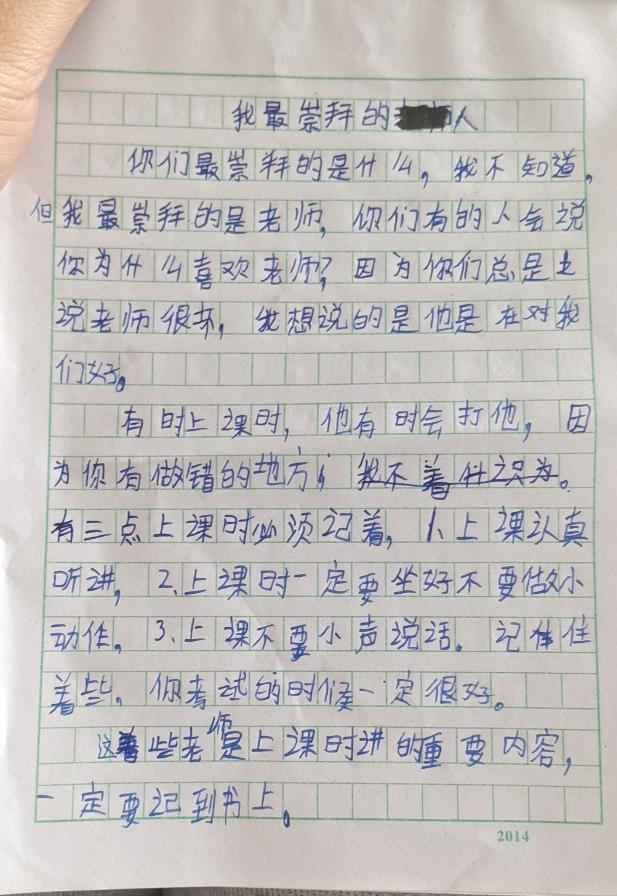 我最崇拜的人
你们最崇拜的是什么，我不知道，
但我最崇拜的是老师，你们有的人会说
你为什么喜欢老师？因为你们总是
说老师很坏，我想说的是他是在对我
们好。
有时上课时，他有时会打他，因
为你有做错的地方；我不着。
有三点上课时必须记着，1、上课认真
听讲，2、上课时一定要坐好不要做小
动作。3、上课不要小声说话。记住
着些，你考试的时候一定很好。
这些老师是上课时讲的重要内容，
一定要记到书上。
2014